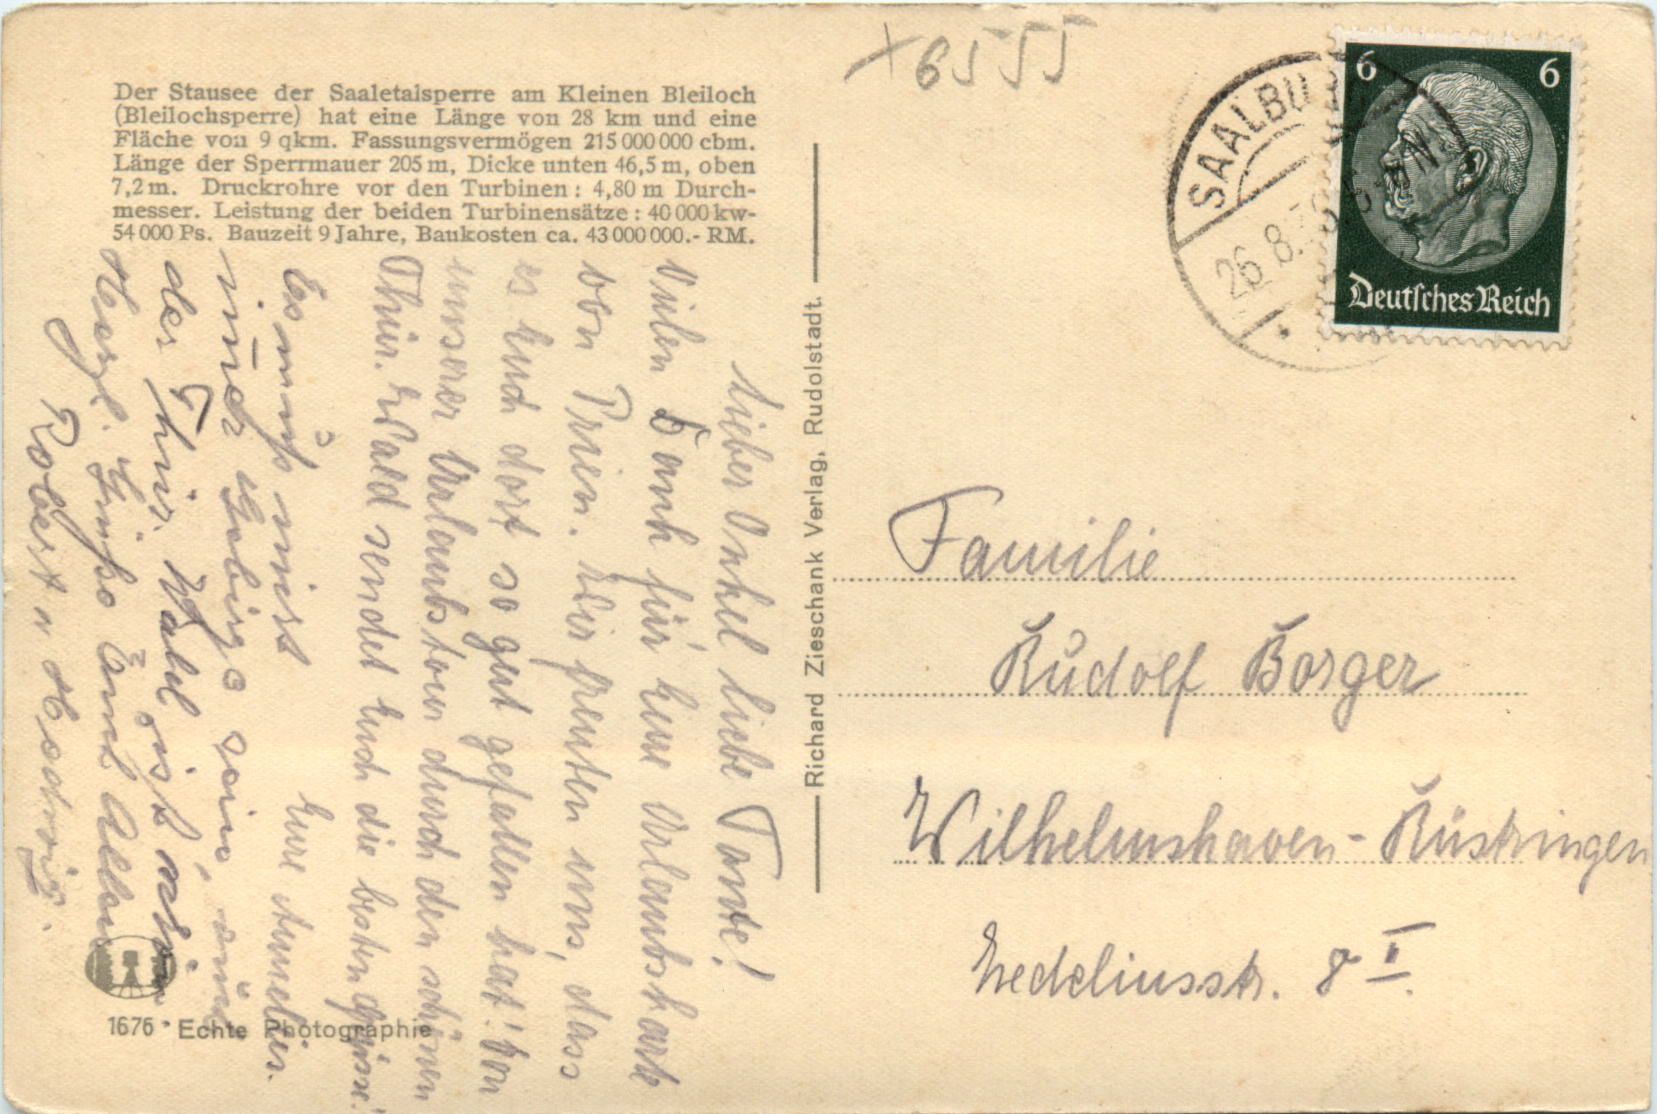 Der Stausee der Saaletalsperre am Kleinen Bleiloch
(Bleilochsperre) hat eine Länge von 28 km und eine
Fläche von 9 qkm. Fassungsvermögen 215 000 000 cbm.
Länge der Sperrmauer 205 m, Dicke unten 46,5 m, oben
7,2 m. Druckrohre vor den Turbinen: 4,80 m Durch-
messer. Leistung der beiden Turbinensätze: 40 000 kw-
54 000 Ps. Bauzeit 9 Jahre, Baukosten ca. 43 000 000.- RM.
Lieber Onkel liebe Tante!
Vielen Dank für Eure Urlaubskarte
von Prien. Wir freuten uns, dass
es Euch dort so gut gefallen hat! Von
unserer Urlaubstour durch den schönen
Thür. Wald sendet Euch die besten Grüsse!
Eure Annelies.
Es muß nicht
nur Gebirge sein, auch
der Thür. Wald ist schön
Herzl. Grüße Euch Allen
Robert u Hedwig.
Richard Zieschank Verlag, Rudolstadt.
1676 · Echte Photographie
+ 6555
SAALBU
26.8.
6 6
Deutsches Reich
Familie
Rudolf Borger
Wilhelmshaven - Rüstringen
Zedeliusstr. 8 II.